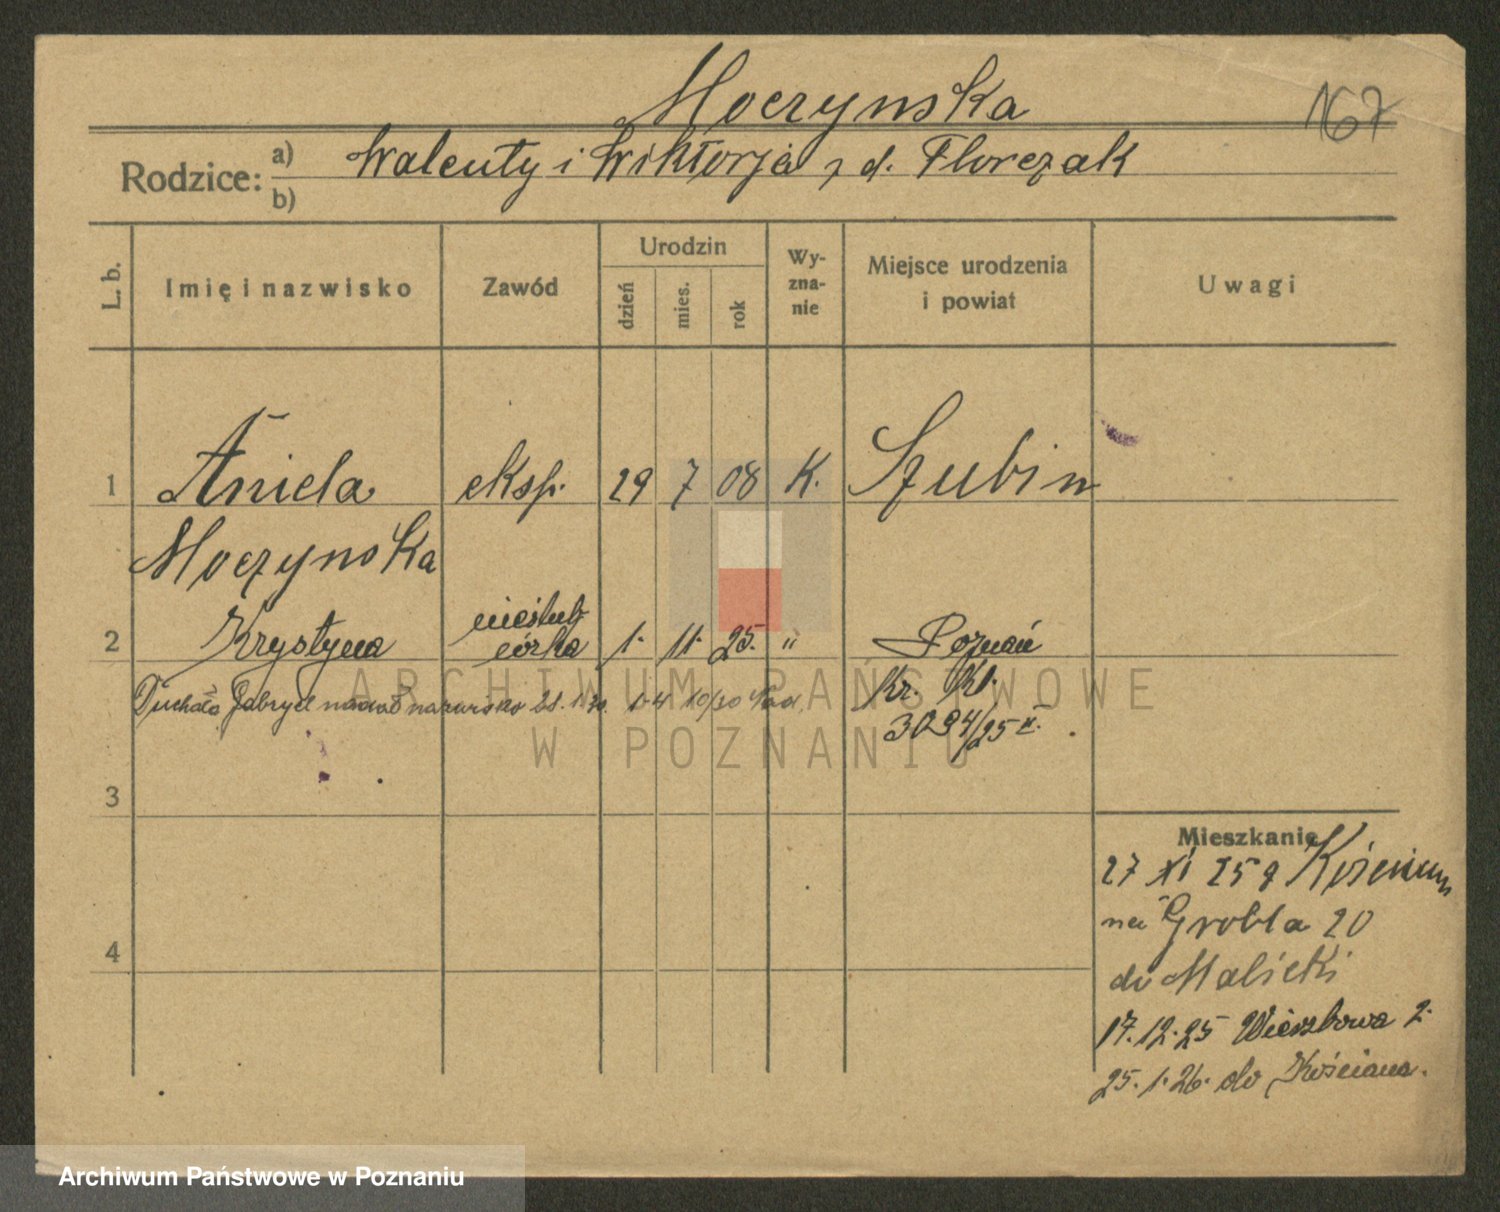 Moczynska
167
Rodzice: a) Walenty i Wiktorja z d. Florczak
b)
L. b. Imię i nazwisko Zawód Urodzin dzień mies. rok Wyznanie Miejsce urodzenia i powiat Uwagi
1 Aniela eksp. 29 7 08 K. Szubin
Moczynska
2 Krystyna nieślub. córka 1. 11. 25. " Poznań
Duchała Gabryel nadał nazwisko
Kr. Kl.
3094/25 II.
3
4
Mieszkanie
27 XI 25 z Kościan
na Grobla 20
do Malicki
17.12.25 Wierzbowa 2.
25.1.26. do Kościana.
ARCHIWUM PAŃSTWOWE
W POZNANIU
Archiwum Państwowe w Poznaniu